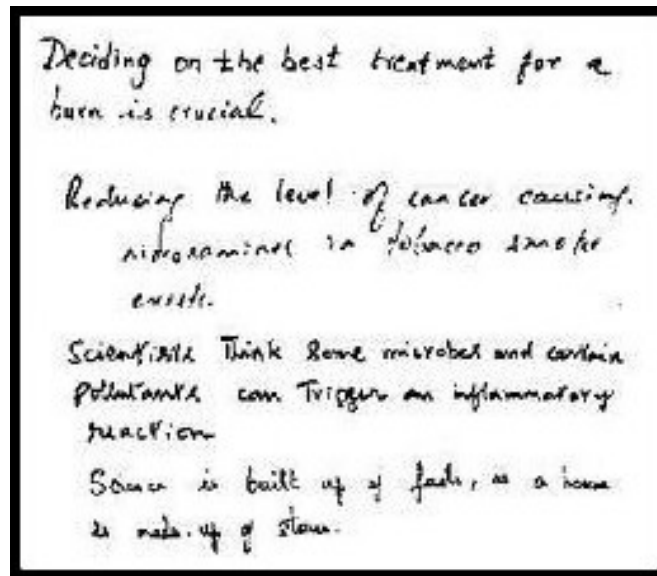 Deciding on the best treatment for a
burn is crucial.
Reducing the level of cancer causing.
in tobacco smoke
exists.
Scientists Think Some microbes and certain
pollutants can Trigger an inflammatory
reaction
Science is built up of facts, as a house
is made. up of stones.